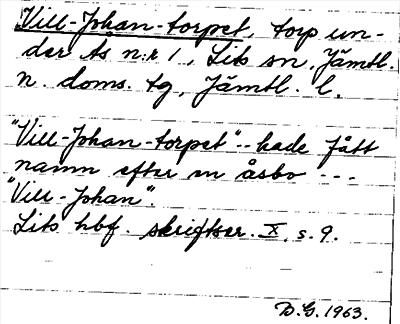 Vill-Johan-torpet, torp un-
der Ås n:r 1, Lits sn, Jämtl.
n. doms. tg, Jämtl. l.
"Vill-Johan-torpet" -- hade fått
namn efter en åsbo ---
"Vill-Johan".
Lits hbf. skriftser. X, s. 9.
D.G. 1963.